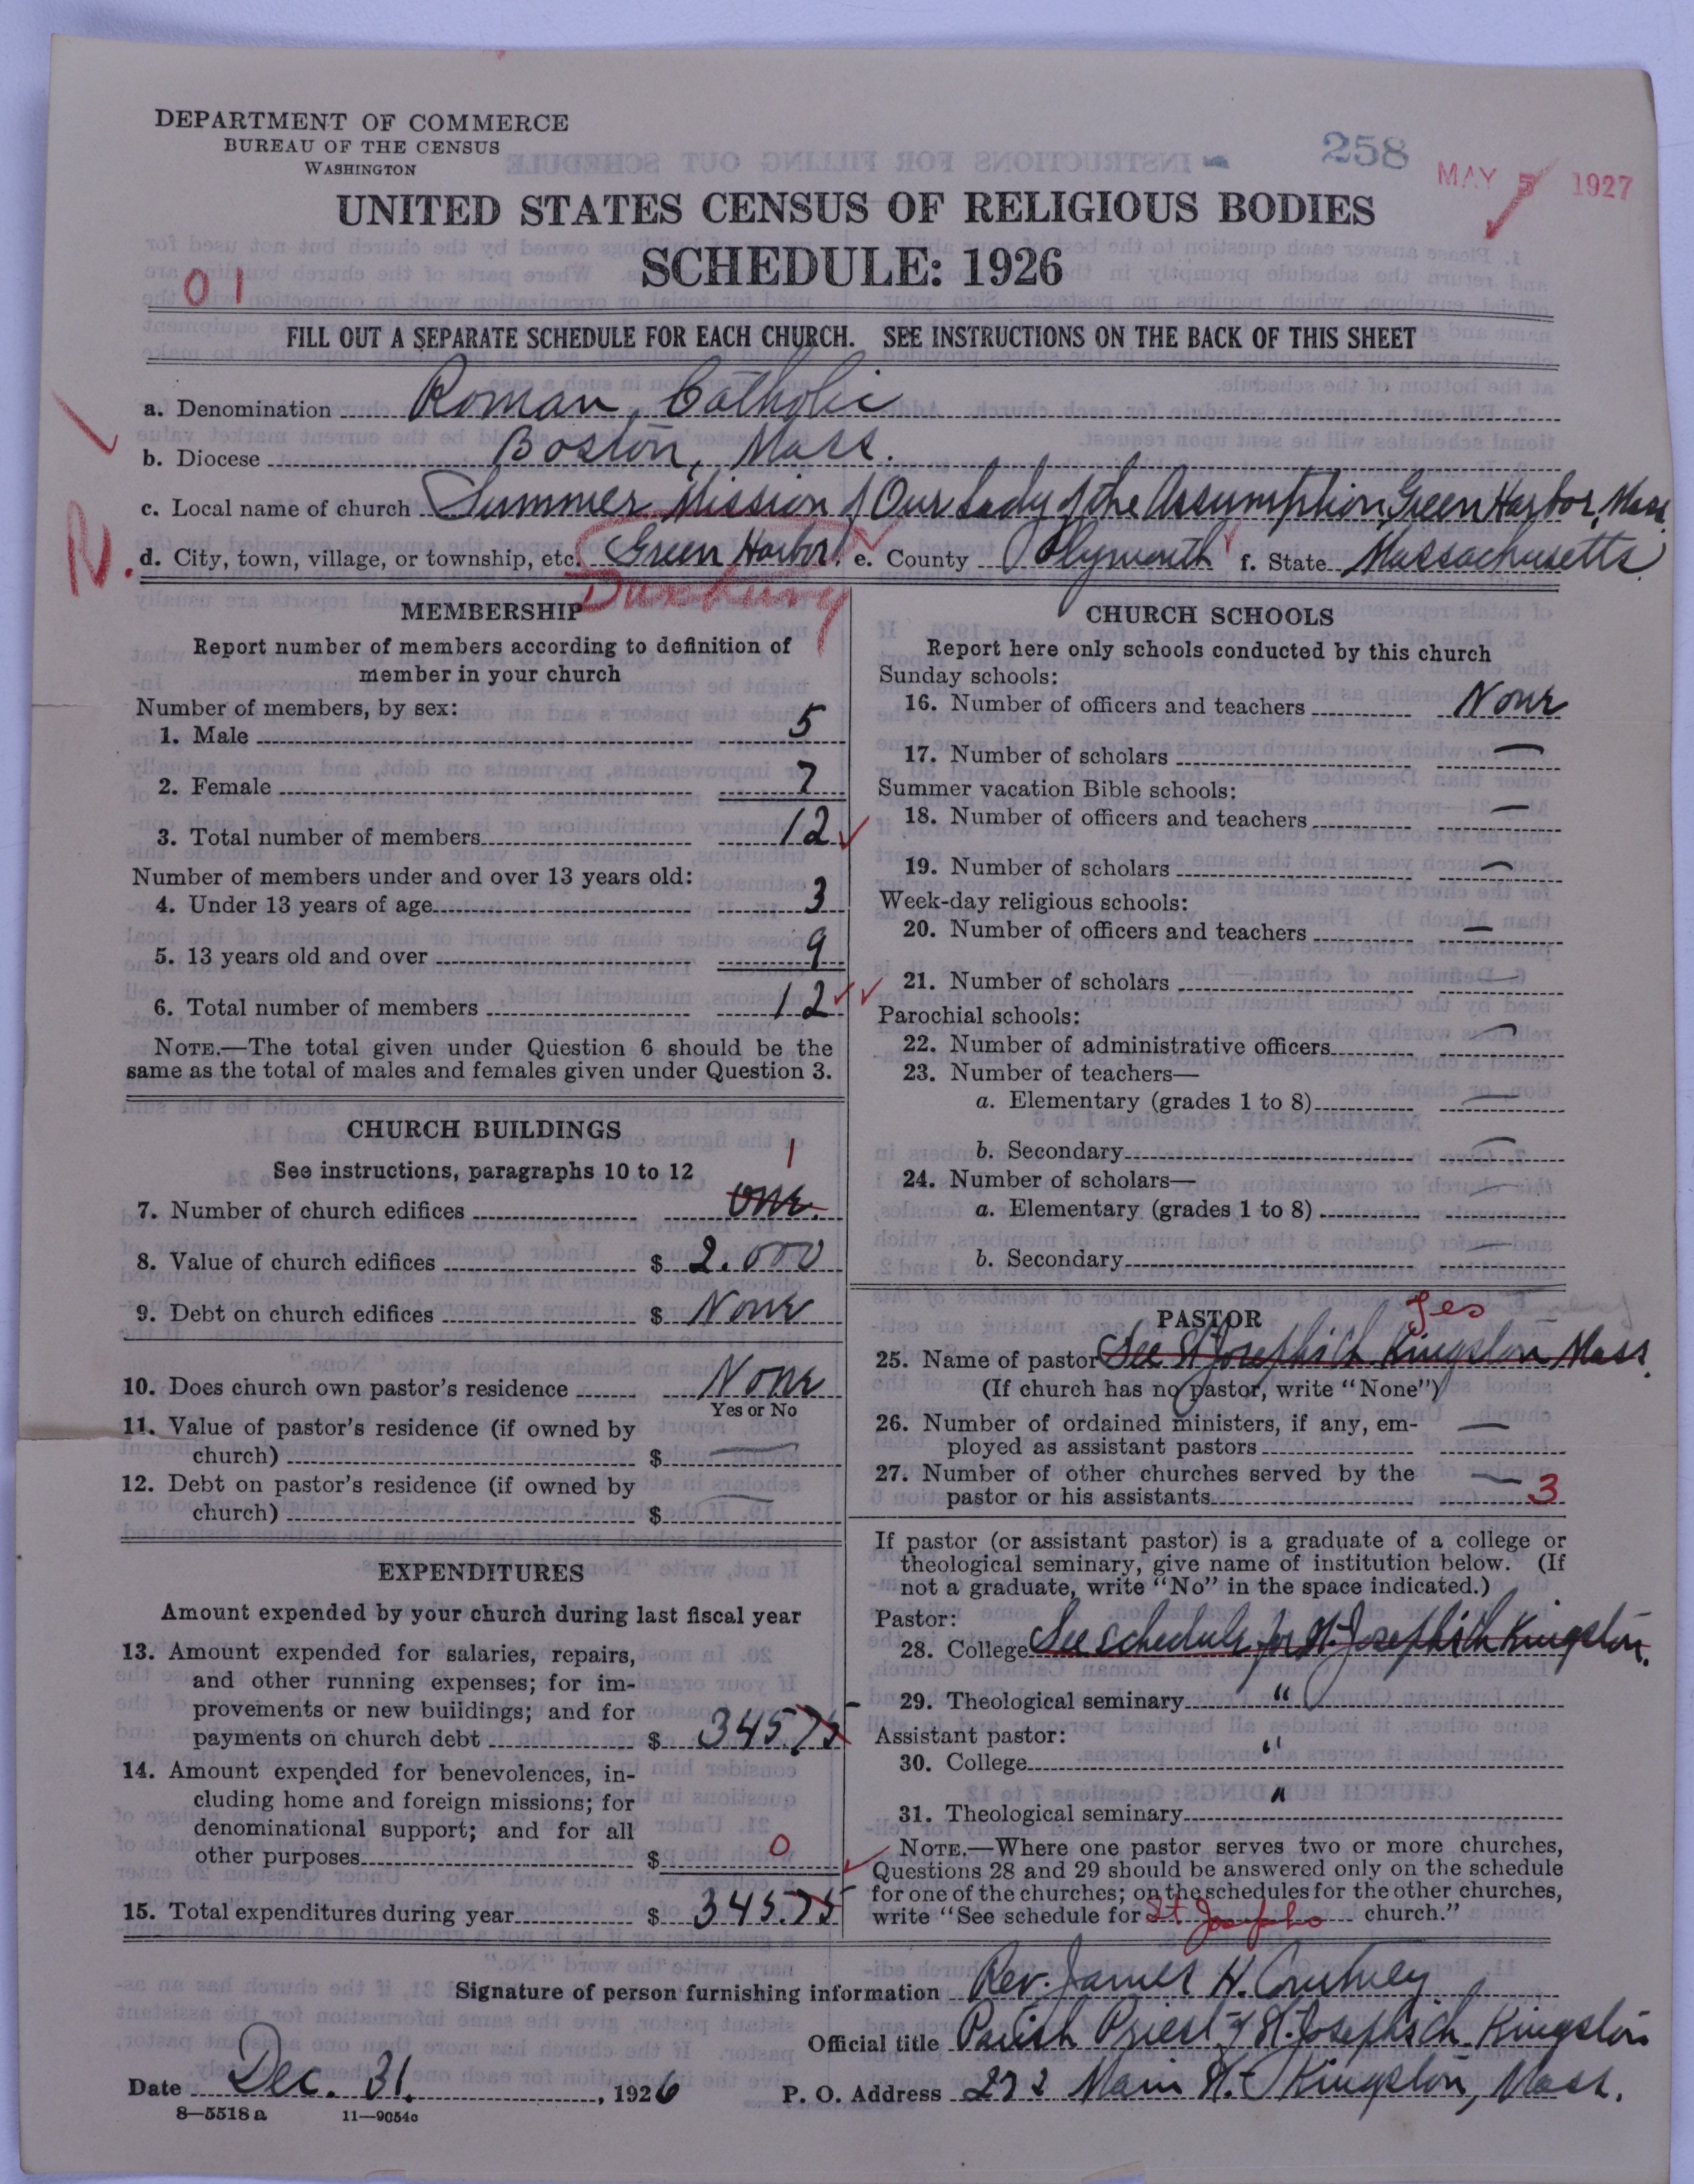 DEPARTMENT OF COMMERCE
BUREAU OF THE CENSUS
WASHINGTON
258
MAY 5 1927
UNITED STATES CENSUS OF RELIGIOUS BODIES
SCHEDULE: 1926
01
FILL OUT A SEPARATE SCHEDULE FOR EACH CHURCH. SEE INSTRUCTIONS ON THE BACK OF THIS SHEET
a. Denomination Roman Catholic
b. Diocese Boston, Mass.
c. Local name of church Summer Mission of Our Lady of the Assumption, Green Harbor, Mass
R. d. City, town, village, or township, etc. Green Harbor. e. County Plymouth f. State Massachusetts
Duxbury
MEMBERSHIP
Report number of members according to definition of
member in your church
Number of members, by sex:
1. Male 5
2. Female 7
3. Total number of members 12
Number of members under and over 13 years old:
4. Under 13 years of age 3
5. 13 years old and over 9
6. Total number of members 12
NOTE.—The total given under Question 6 should be the
same as the total of males and females given under Question 3.
CHURCH BUILDINGS
See instructions, paragraphs 10 to 12
1
7. Number of church edifices one.
8. Value of church edifices $ 2.000
9. Debt on church edifices $ None
10. Does church own pastor's residence None
Yes or No
11. Value of pastor's residence (if owned by
church) $ —
12. Debt on pastor's residence (if owned by
church) $ —
EXPENDITURES
Amount expended by your church during last fiscal year
13. Amount expended for salaries, repairs,
and other running expenses; for im-
provements or new buildings; and for
payments on church debt $ 345.75
14. Amount expended for benevolences, in-
cluding home and foreign missions; for
denominational support; and for all
other purposes $ 0
15. Total expenditures during year $ 345.75
CHURCH SCHOOLS
Report here only schools conducted by this church
Sunday schools:
16. Number of officers and teachers None
17. Number of scholars —
Summer vacation Bible schools:
18. Number of officers and teachers —
19. Number of scholars —
Week-day religious schools:
20. Number of officers and teachers —
21. Number of scholars —
Parochial schools:
22. Number of administrative officers —
23. Number of teachers—
a. Elementary (grades 1 to 8) —
b. Secondary —
24. Number of scholars—
a. Elementary (grades 1 to 8) —
b. Secondary —
PASTOR
Yes
25. Name of pastor See St Joseph's ch Kingston Mass.
(If church has no pastor, write "None")
26. Number of ordained ministers, if any, em-
ployed as assistant pastors —
27. Number of other churches served by the
pastor or his assistants — 3
If pastor (or assistant pastor) is a graduate of a college or
theological seminary, give name of institution below. (If
not a graduate, write "No" in the space indicated.)
Pastor:
28. College See schedule for St. Joseph's ch Kingston.
29. Theological seminary "
Assistant pastor:
30. College "
31. Theological seminary "
NOTE.—Where one pastor serves two or more churches,
Questions 28 and 29 should be answered only on the schedule
for one of the churches; on the schedules for the other churches,
write "See schedule for St Josephs church."
Signature of person furnishing information Rev. James H. Courtney
Official title Parish Priest of St. Joseph's ch. Kingston
Date Dec. 31. , 1926 P. O. Address 272 Main St. Kingston, Mass.
8—5518 a 11—9054c